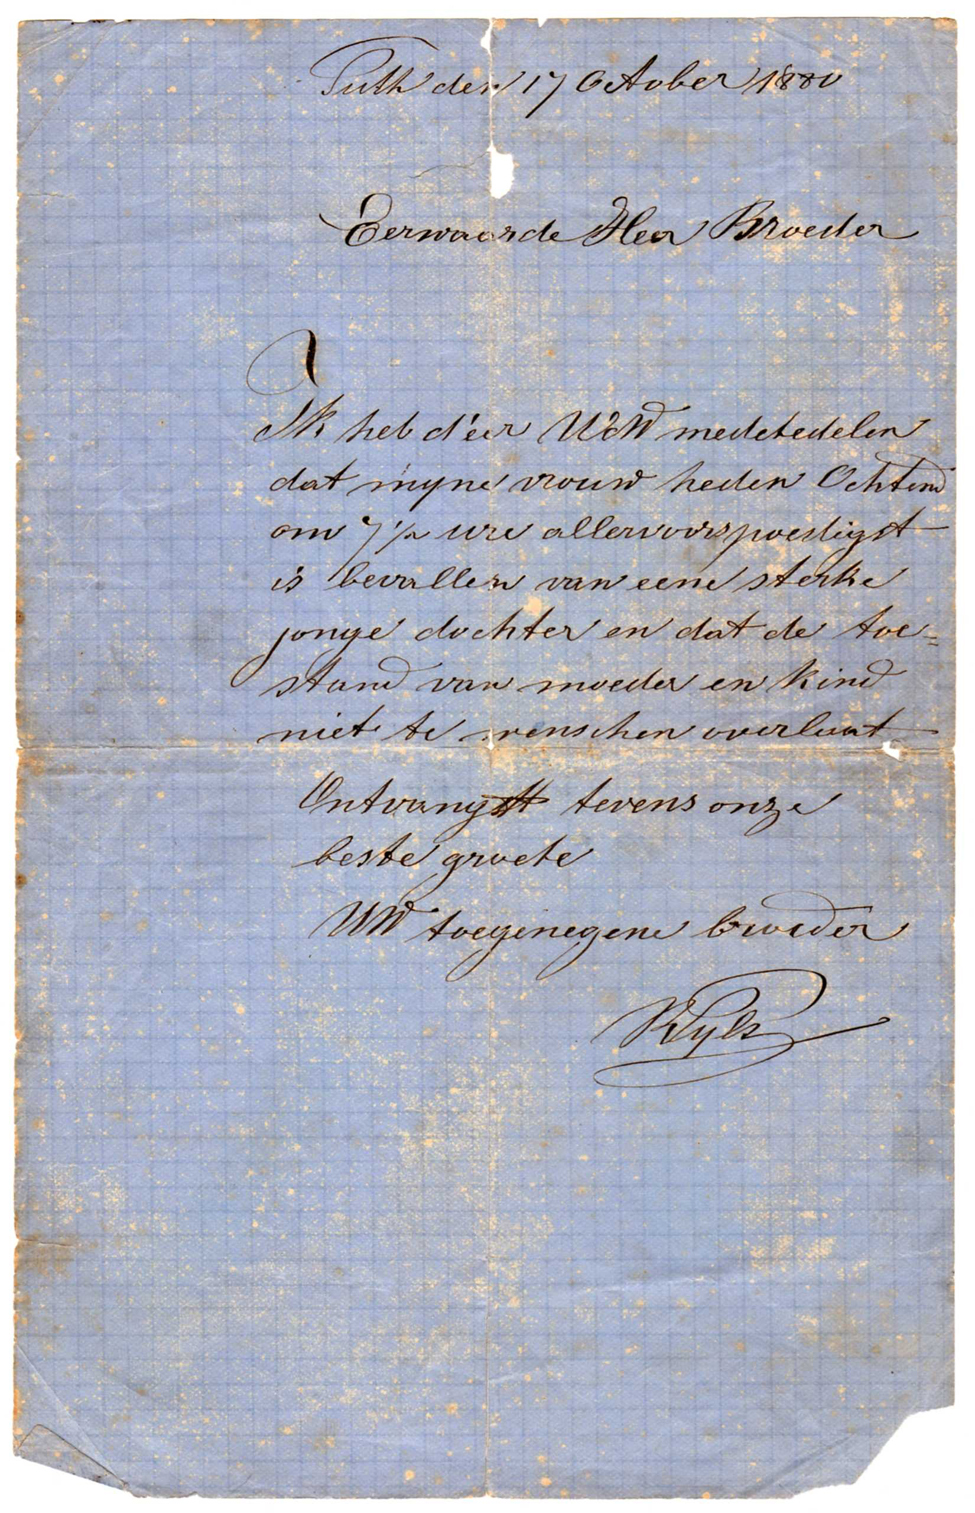 Puth den 17 October 1880
Eerwaarde Heer Broeder
Ik heb d'eer UEW medetedelen
dat mijne vrouw heden Ochtend
om 7 1/2 ure allervoorspoedigst
is bevallen van eene sterke
jonge dochter en dat de toe=
stand van moeder en kind
niet te wenschen overlaat
Ontvangt tevens onze
beste groete
UW toegenegene broeder